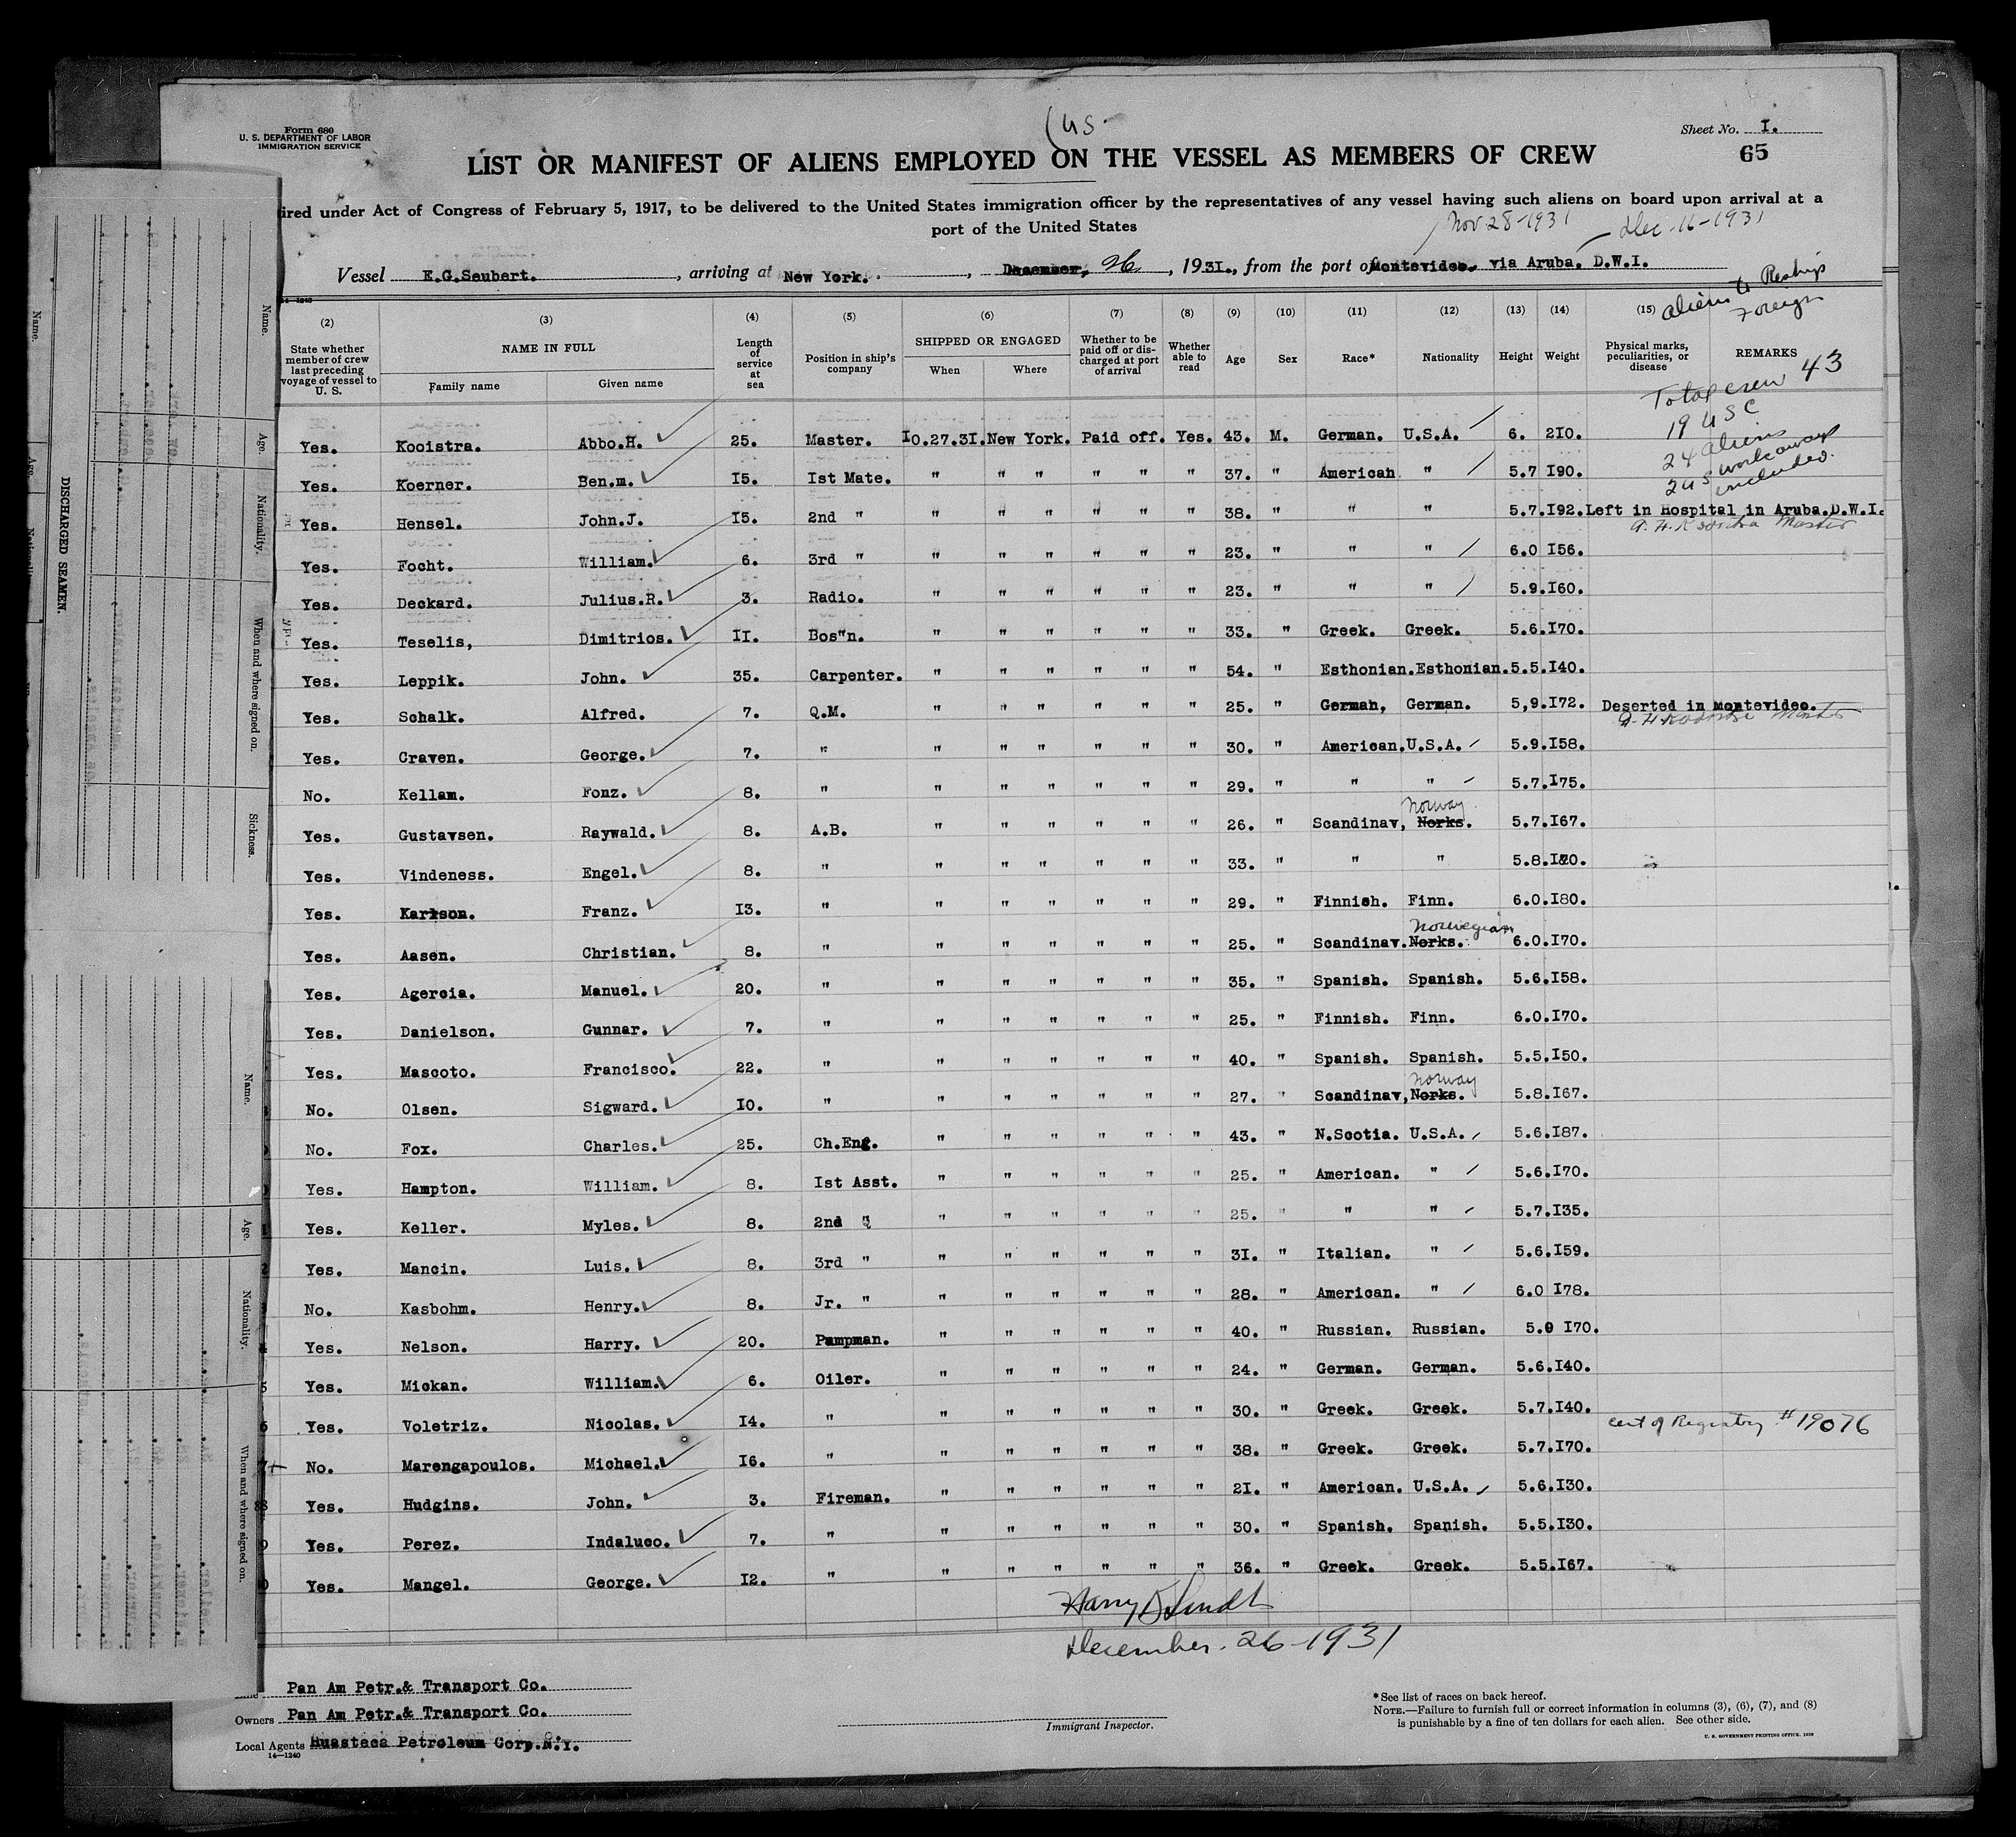 (us
Form 680
U. S. DEPARTMENT OF LABOR
IMMIGRATION SERVICE
Sheet No. I.
65
LIST OR MANIFEST OF ALIENS EMPLOYED ON THE VESSEL AS MEMBERS OF CREW
ired under Act of Congress of February 5, 1917, to be delivered to the United States immigration officer by the representatives of any vessel having such aliens on board upon arrival at a
port of the United States
Nov 28-1931 Dec-16-1931
Vessel E.G.Seubert. , arriving at New York. , December, 26 , 1931., from the port of Montevideo. via Aruba. D.W.I.
Aliens to Reship
Foreign
14-1240
(2) (3) (4) (5) (6) (7) (8) (9) (10) (11) (12) (13) (14) (15)
State whether member of crew last preceding voyage of vessel to U. S.
NAME IN FULL
Family name Given name
Length of service at sea
Position in ship's company
SHIPPED OR ENGAGED
When Where
Whether to be paid off or discharged at port of arrival
Whether able to read
Age Sex Race* Nationality Height Weight
Physical marks, peculiarities, or disease
REMARKS
Total crew 43
19 USC
24 aliens
2 US workaways
included.
Yes. Kooistra. Abbo.H. 25. Master. I0.27.3I. New York. Paid off. Yes. 43. M. German. U.S.A. 6. 2I0.
Yes. Koerner. Ben.m. I5. Ist Mate. " " " " " " 37. " American " 5.7 I90.
Yes. Hensel. John.J. I5. 2nd " " " " " " " 38. " " " 5.7.I92. Left in Hospital in Aruba.D.W.I.
A. H. Kooistra Master
Yes. Focht. William. 6. 3rd " " " " " " " 23. " " " 6.0 I56.
Yes. Deckard. Julius.R. 3. Radio. " " " " " " 23. " " " 5.9.I60.
Yes. Teselis, Dimitrios. II. Bos"n. " " " " " " 33. " Greek. Greek. 5.6.I70.
Yes. Leppik. John. 35. Carpenter. " " " " " " 54. " Esthonian. Esthonian. 5.5.I40.
Yes. Schalk. Alfred. 7. Q.M. " " " " " " 25. " German, German. 5,9.I72. Deserted in Montevideo.
A. H. Kooistra Master
Yes. Craven. George. 7. " " " " " " " 30. " American. U.S.A. 5.9.I58.
No. Kellam. Fonz. 8. " " " " " " " 29. " " " 5.7.I75.
Norway.
Yes. Gustavsen. Raywald. 8. A.B. " " " " " " 26. " Scandinav, Norks. 5.7.I67.
Yes. Vindeness. Engel. 8. " " " " " " " 33. " " " 5.8.
Yes. Karlson. Franz. I3. " " " " " " " 29. " Finnish. Finn. 6.0.I80.
Norwegian
Yes. Aasen. Christian. 8. " " " " " " " 25. " Scandinav. Norks. 6.0.I70.
Yes. Agercia. Manuel. 20. " " " " " " " 35. " Spanish. Spanish. 5.6.I58.
Yes. Danielson. Gunnar. 7. " " " " " " " 25. " Finnish. Finn. 6.0.I70.
Yes. Mascoto. Francisco. 22. " " " " " " " 40. " Spanish. Spanish. 5.5.I50.
Norway
No. Olsen. Sigward. I0. " " " " " " " 27. " Scandinav, Norks. 5.8.I67.
No. Fox. Charles. 25. Ch.Eng. " " " " " " 43. " N.Scotia. U.S.A. 5.6.I87.
Yes. Hampton. William. 8. Ist Asst. " " " " " " 25. " American. " 5.6.I70.
Yes. Keller. Myles. 8. 2nd " " " " " " " 25. " " " 5.7.I35.
Yes. Mancin. Luis. 8. 3rd " " " " " " " 3I. " Italian. " 5.6.I59.
No. Kasbohm. Henry. 8. Jr. " " " " " " " 28. " American. " 6.0 I78.
Yes. Nelson. Harry. 20. Pumpman. " " " " " " 40. " Russian. Russian. 5.9 I70.
Yes. Mickan. William. 6. Oiler. " " " " " " 24. " German. German. 5.6.I40.
Yes. Voletriz. Nicolas. I4. " " " " " " " 30. " Greek. Greek. 5.7.I40.
Cert of Registry #19076
No. Marengapoulos. Michael. I6. " " " " " " " 38. " Greek. Greek. 5.7.I70.
Yes. Hudgins. John. 3. Fireman. " " " " " " 2I. " American. U.S.A. 5.6.I30.
Yes. Perez. Indaluco. 7. " " " " " " " 30. " Spanish. Spanish. 5.5.I30.
Yes. Mangel. George. I2. " " " " " " " 36. " Greek. Greek. 5.5.I67.
December. 26-1931
Pan Am Petr.& Transport Co.
Owners Pan Am Petr.& Transport Co.
Local Agents Huasteca Petroleum Corp.N.Y.
14-1240
Immigrant Inspector.
*See list of races on back hereof.
NOTE.—Failure to furnish full or correct information in columns (3), (6), (7), and (8)
is punishable by a fine of ten dollars for each alien. See other side.
U. S. GOVERNMENT PRINTING OFFICE. 1929
DISCHARGED SEAMEN.
Name.
Age.
Nationality.
When and where signed on.
Sickness.
Name.
Age.
Nationality.
When and where signed on.